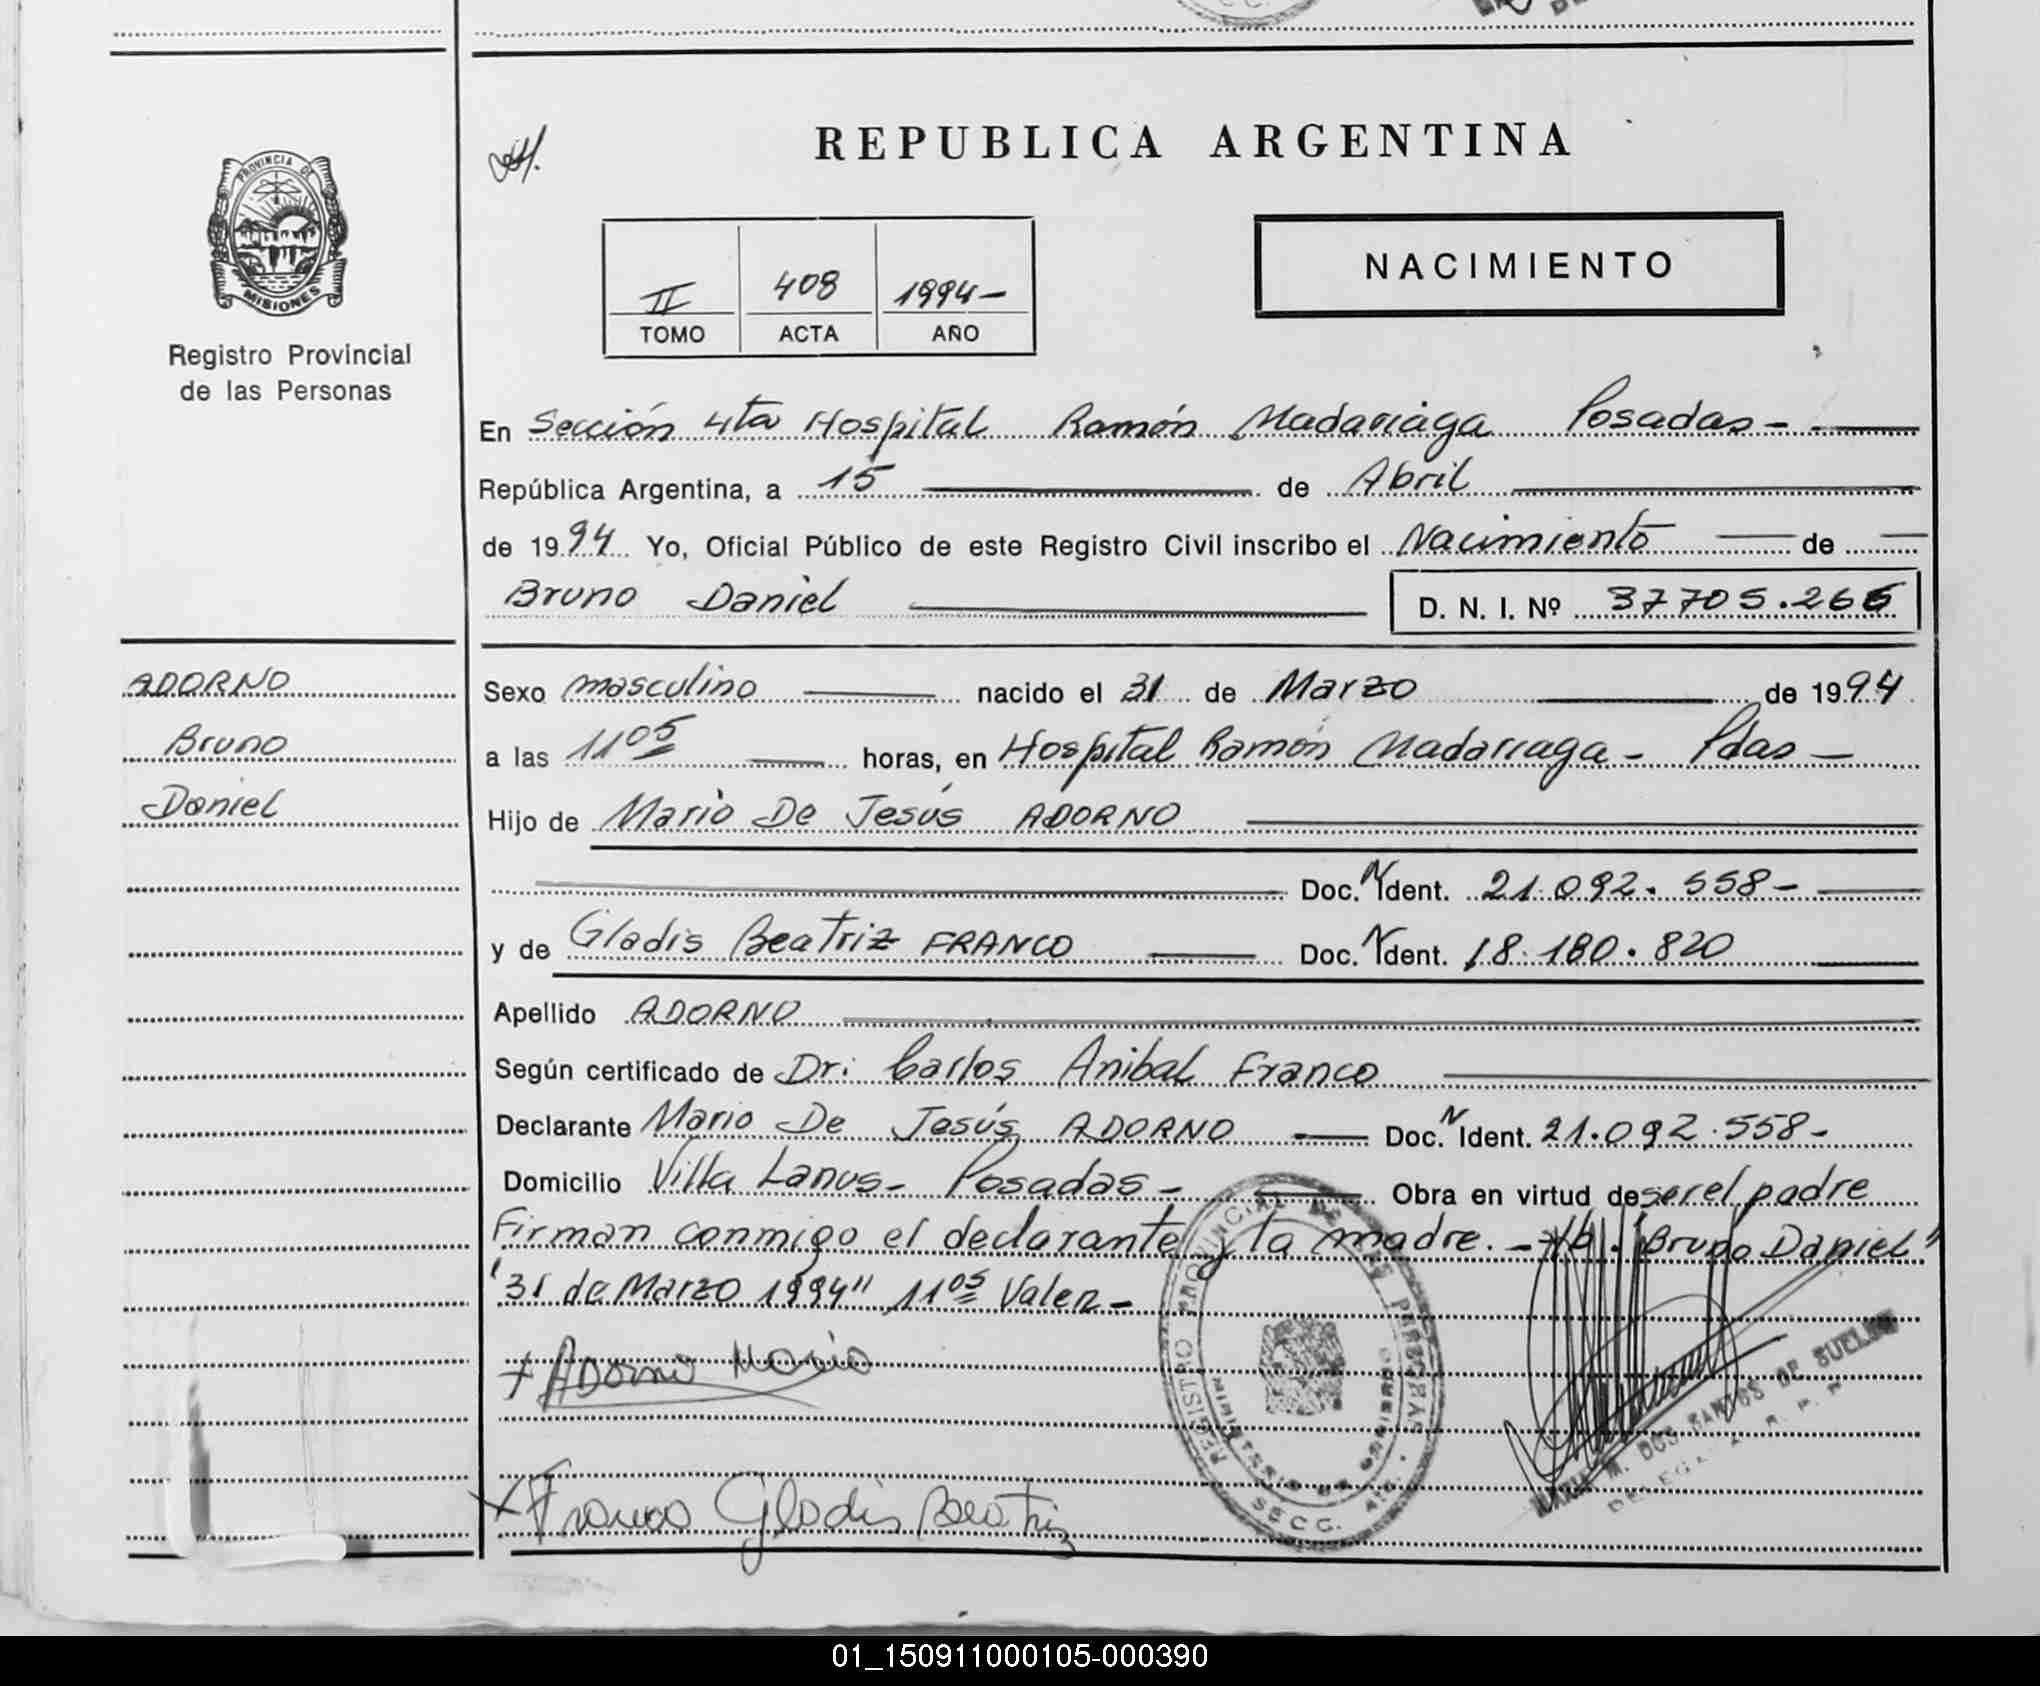 REPUBLICA ARGENTINA
PROVINCIA DE
MISIONES
Registro Provincial
de las Personas
II 408 1994-
TOMO ACTA AÑO
NACIMIENTO
En Sección 4ta Hospital Ramón Madariaga Posadas -
República Argentina, a 15 de Abril
de 1994 Yo, Oficial Público de este Registro Civil inscribo el Nacimiento de
Bruno Daniel D. N. I. Nº 37705.266
ADORNO
Bruno
Daniel
Sexo masculino nacido el 31 de Marzo de 1994
a las 11 05 horas, en Hospital Ramón Madariaga - Pdas -
Hijo de Mario De Jesús ADORNO
Doc. N Ident. 21.092.558-
y de Gladis Beatriz FRANCO Doc. N Ident. 18.180.820
Apellido ADORNO
Según certificado de Dr: Carlos Anibal Franco
Declarante Mario De Jesús ADORNO Doc. N Ident. 21.092.558-
Domicilio Villa Lanus - Posadas - Obra en virtud de ser el padre
Firman conmigo el declarante y la madre. - "Bruno Daniel"
"31 de Marzo 1994" 11 05 Valen -
+ Adorno Mario
REGISTRO PROVINCIAL DE LAS PERSONAS
MINISTERIO DE GOBIERNO
SECC. 4ta.
DOS SANTOS DE
x Franco Gladis Beatriz
01_150911000105-000390